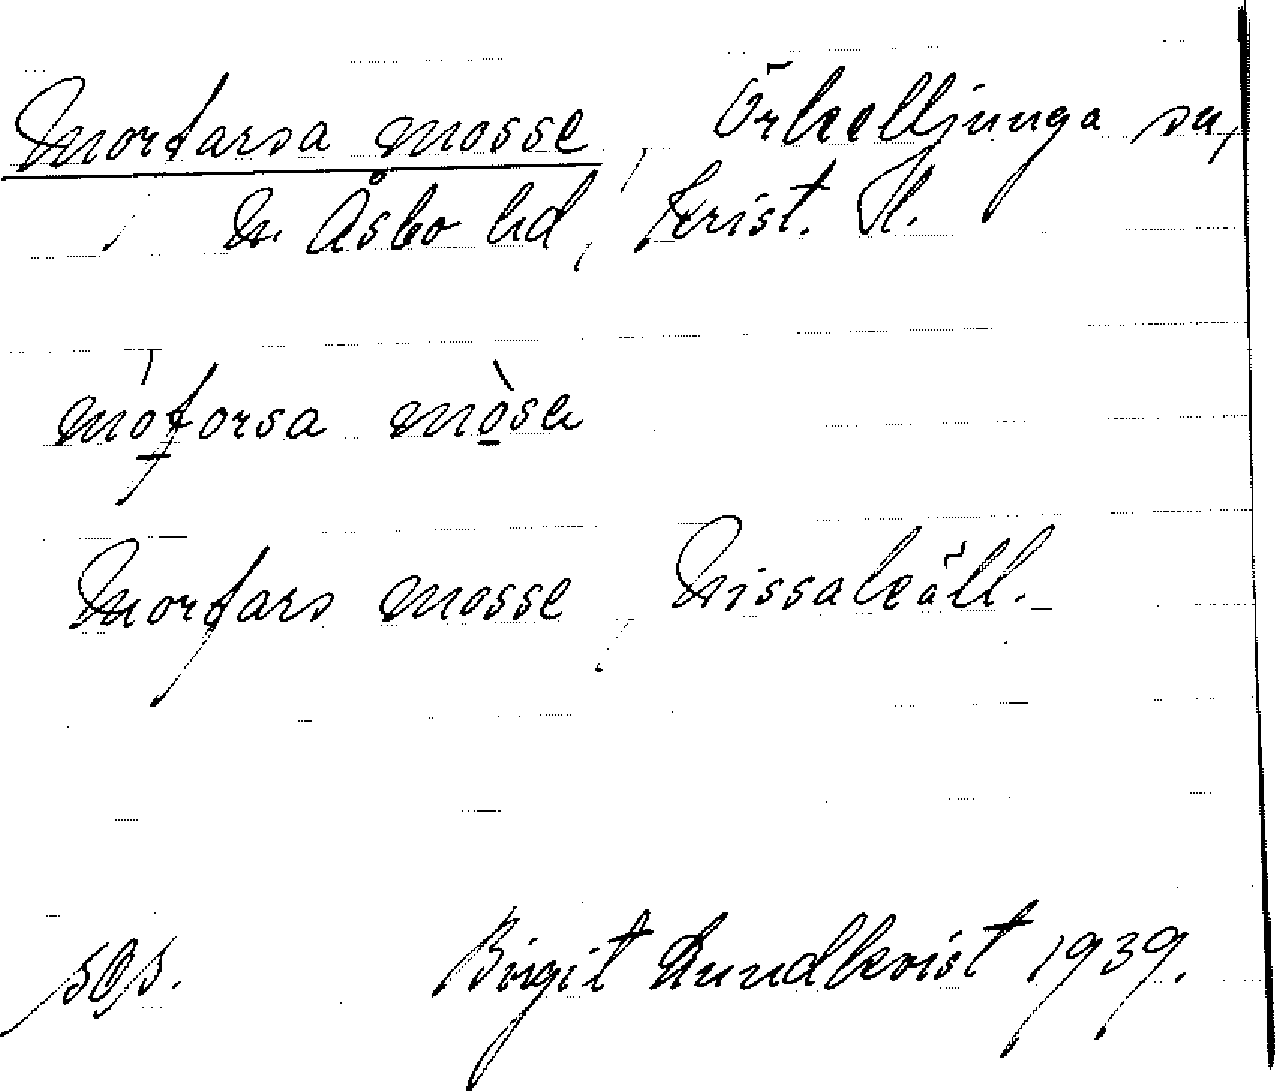 Morfarsa mosse, Örkelljunga sn,
N. Åsbo hd, Krist. l.
móforsa mòse
Morfars mosse, Nissakäll.
sOs. Birgit Lundkvist 1939.